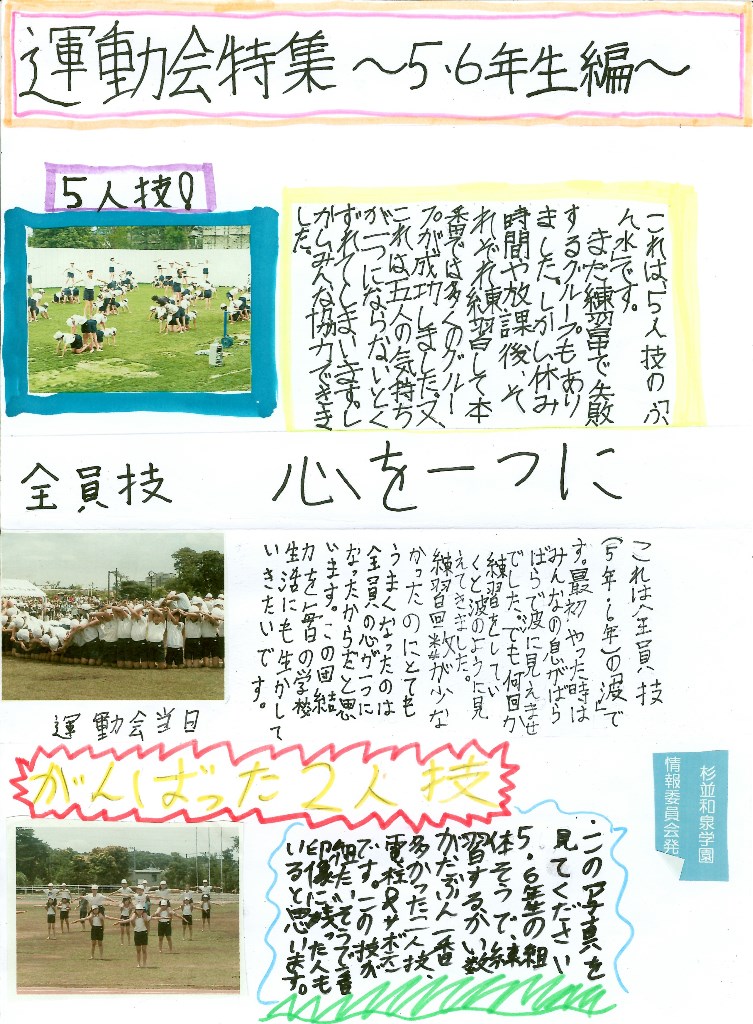 運動会特集 〜5・6年生編〜
5人技!
これは、5人技の「ふ
ん水」です。
また練習中で失敗
するグループもあり
ました。しかし休み
時間や放課後、そ
れぞれ練習して本
番では多くのグルー
プが成功しました。又、
これは五人の気持ち
が一つにならないとく
ずれてしまいます。し
かしみんな協力できま
した。
全員技
心を一つに
これは全員技
(5年・6年)の「波」で
す。最初やった時は
みんなの息がばら
ばらで波に見えませ
んでした。でも何回か
練習をしてい
くと波のように見
えてきました。
練習回数が少な
かったのにとても
うまくなったのは
全員の心が一つに
なったからだと思
います。この団結
力を毎日の学校
生活にも生かして
いきたいです。
運動会当日
がんばった2人技
この写真を
見てください
5・6年生の組
体そうで、練
習するかい数
がたぶん一番
多かった二人技、
電柱&サボテン
です。この技が
組たいそうで一番
印像に残った人も
いると思います。
杉並和泉学園
情報委員会発